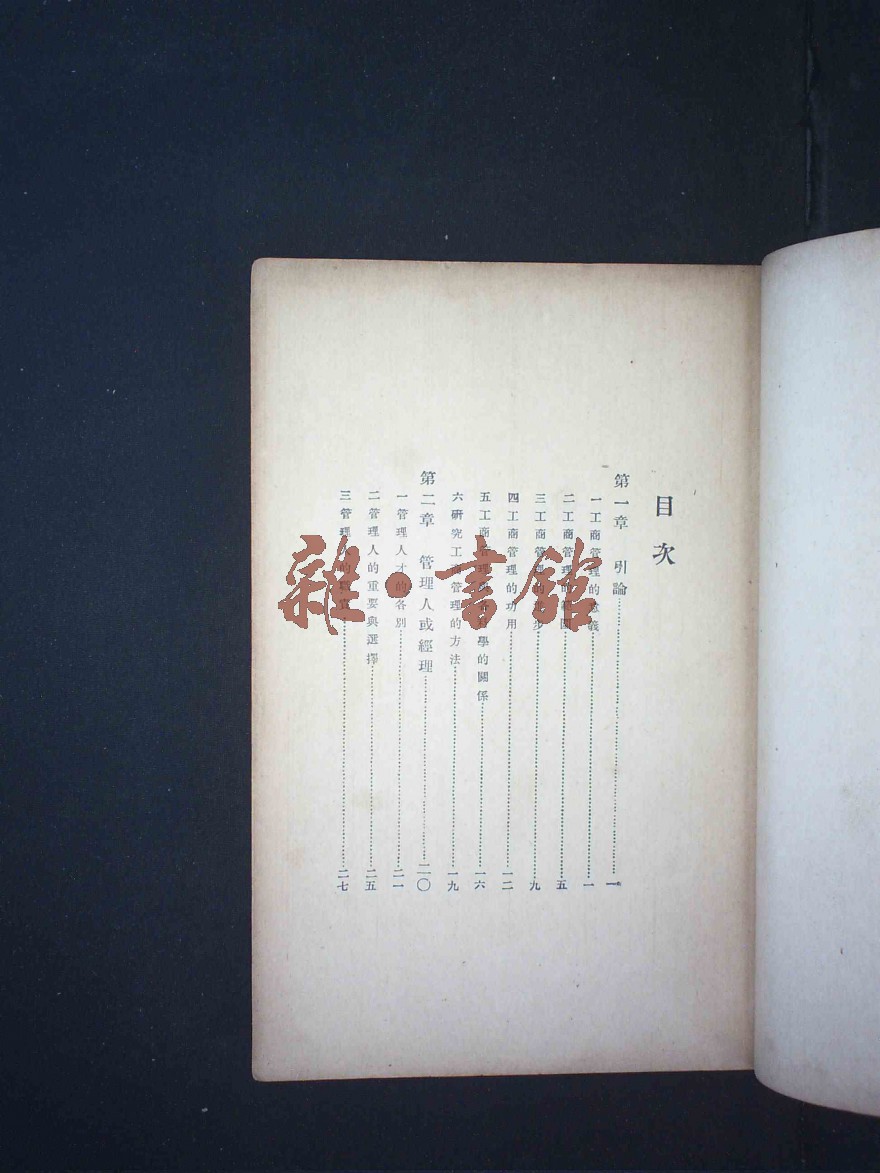 目次
第一章 引論 一
一 工商管理的意義 一
二 工商管理的範圍 五
三 工商管理的進步 九
四 工商管理的功用 一二
五 工商管理與各科學的關係 一六
六 研究工商管理的方法 一九
第二章 管理人或經理 二〇
一 管理人才的各別 二一
二 管理人的重要與選擇 二五
三 管理人的職責 二七
雜·書館